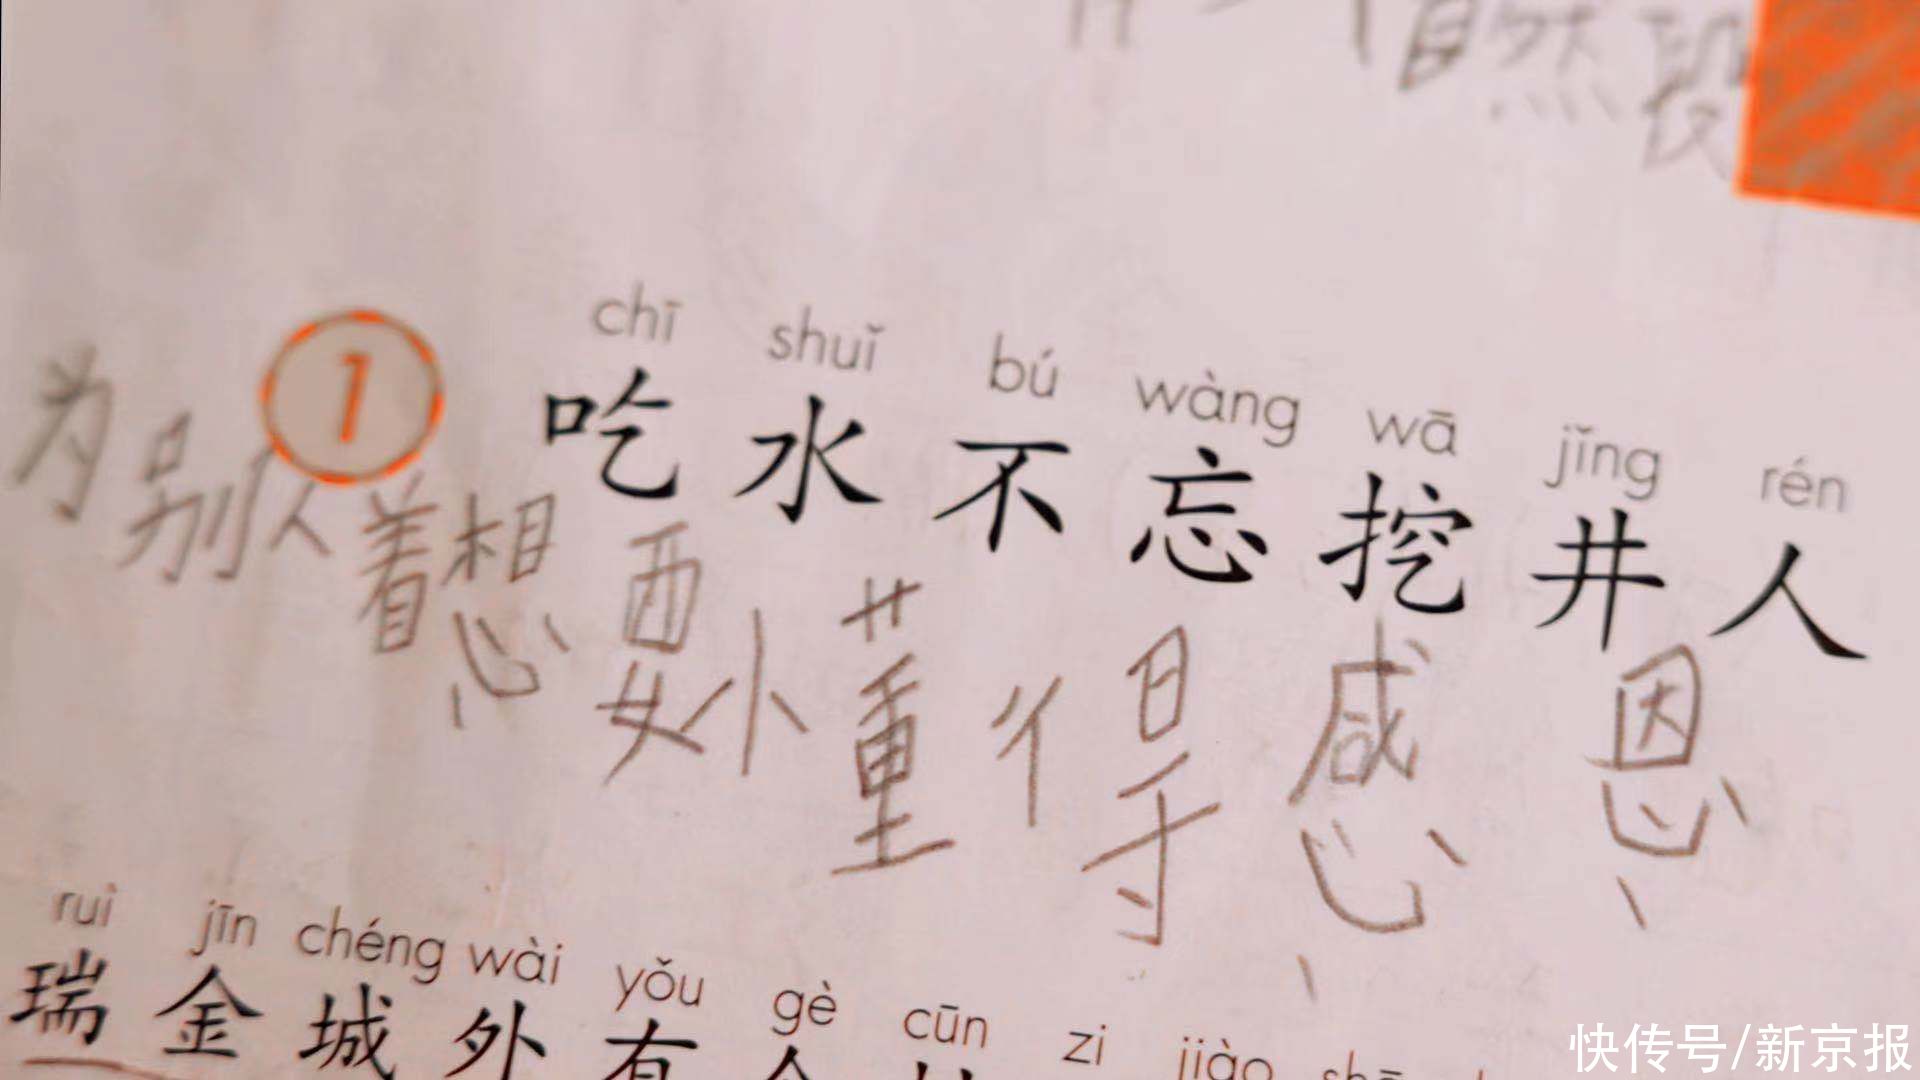 自然段
1
chī shuǐ bú wàng wā jǐng rén
吃水不忘挖井人
为别人着想要懂得感恩
ruì jīn chéng wài yǒu gè cūn zi jiào
瑞金城外有个村
快传号/新京报